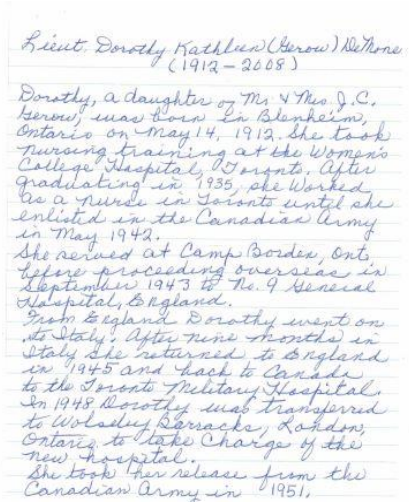 Lieut. Dorothy Kathleen (Gerow) DeMone
(1912-2008)
Dorothy, a daughter of Mr & Mrs. J.C.
Gerow, was born in Blenheim,
Ontario on May 14, 1912. She took
nursing training at the Women's
College Hospital, Toronto. After
graduating in 1935, she worked
as a nurse in Toronto until she
enlisted in the Canadian Army
in May 1942.
She served at Camp Borden, Ont,
before proceeding overseas in
September 1943 to No. 9 General
Hospital, England.
From England Dorothy went on
to Italy. After nine months in
Italy she returned to England
in 1945 and back to Canada
to the Toronto Military Hospital.
In 1948 Dorothy was transferred
to Wolseley Barracks, London,
Ontario to take Charge of the
new hospital.
She took her release from the
Canadian Army in 1951.